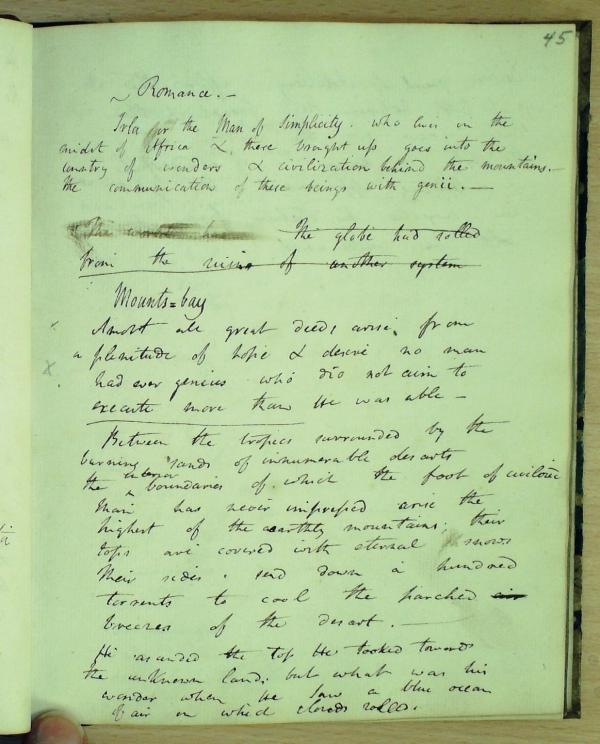 45
Romance. —
Irla or the Man of simplicity. who lives in the
midst of Africa & there brought up goes into the
country of wonders & civilization behind the mountains. —
the communication of these beings with genii. —
The globe had rolled
from the of another system
Mounts=bay
Almost all great deeds arise from
a plenitude of hope & desire no man
had ever genius who did not aim to
execute more than he was able —
Between the tropics surrounded by the
burning sands of innumerable desarts
the interior boundaries of which the foot of
Man has never impressed arise the
highest of the earthly mountains; their
tops are covered with eternal snows
their sides send down a hundred
torrents to cool the parched air
breezes of the desart. —
He ascended the top He looked towards
the unknown land; but what was his
wonder when He saw a blue ocean
of air on which clouds rolled.